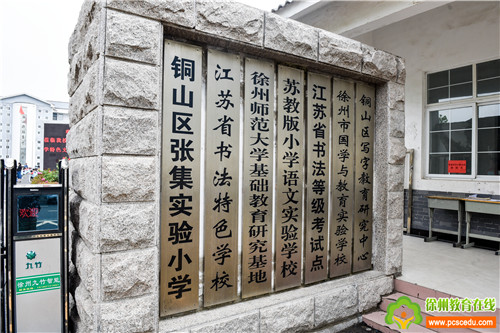 铜山区张集实验小学
江苏省书法特色学校
徐州师范大学基础教育研究基地
苏教版小学语文实验学校
江苏省书法等级考试点
徐州市国学与教育实验学校
铜山区写字教育研究中心
欢迎
九竹
徐州九竹智能
徐州教育在线
www.pcscedu.com